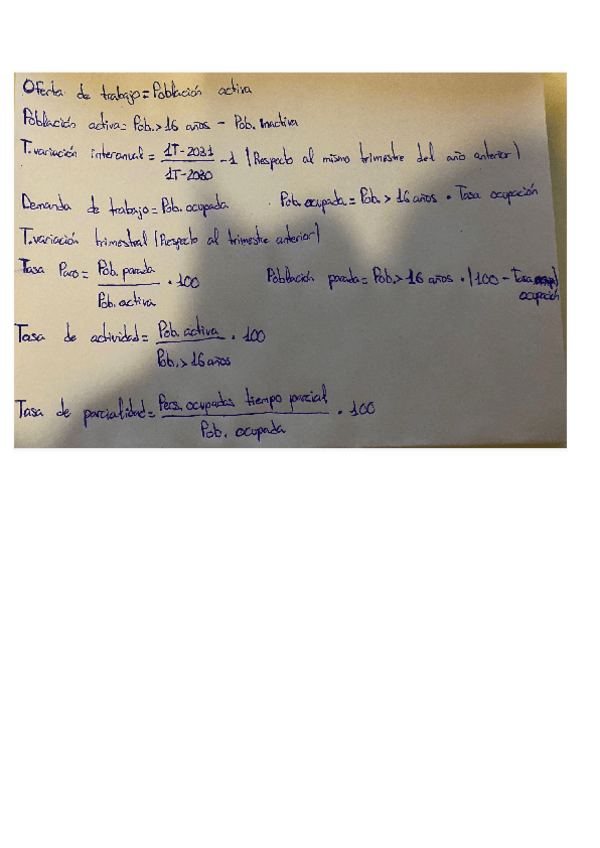 Oferta de trabajo = Población activa
Población activa = Pob. > 16 años - Pob. Inactiva
T. variación interanual = 1T-2021 / 1T-2020 - 1 (Respecto al mismo trimestre del año anterior)
Demanda de trabajo = Pob. ocupada . Pob. ocupada = Pob > 16 años · Tasa ocupación
T. variación trimestral (Respecto al trimestre anterior)
Tasa Paro = Pob. parada / Pob. activa · 100 Población parada = Pob > 16 años · (100 - Tasa ocupación
Tasa de actividad = Pob. activa / Pob. > 16 años · 100
Tasa de parcialidad = Pers. ocupadas tiempo parcial / Pob. ocupada · 100